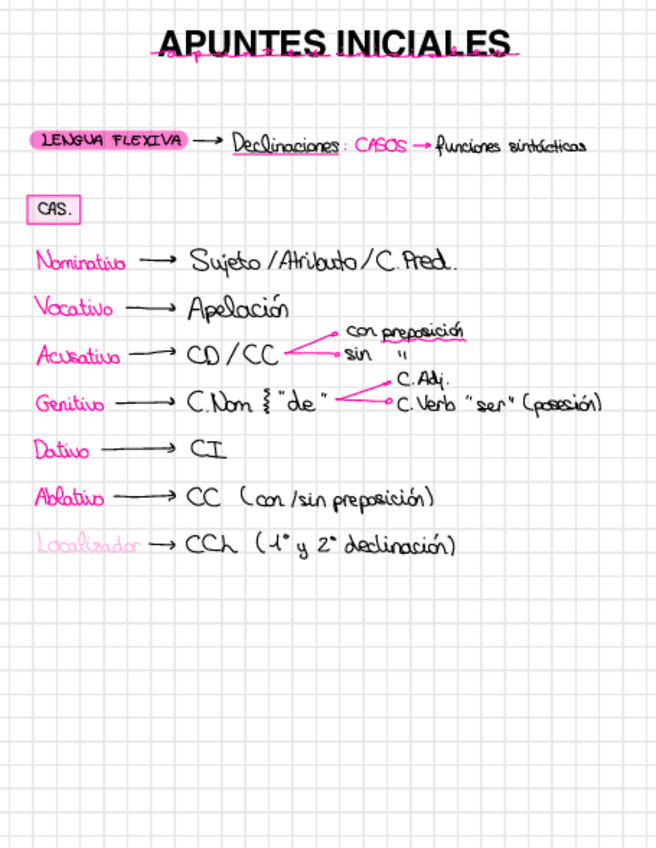 APUNTES INICIALES
apuntes iniciales
LENGUA FLEXIVA → Declinaciones: CASOS → funciones sintácticas
CAS.
Nominativo → Sujeto / Atributo / C. Pred.
Vocativo → Apelación
con preposición
Acusativo → CD / CC sin "
C. Adj.
Genitivo → C. Nom } "de" C. Verb "ser" (posesión)
Dativo → CI
Ablativo → CC (con / sin preposición)
Localizador → CCL (1ª y 2ª declinación)